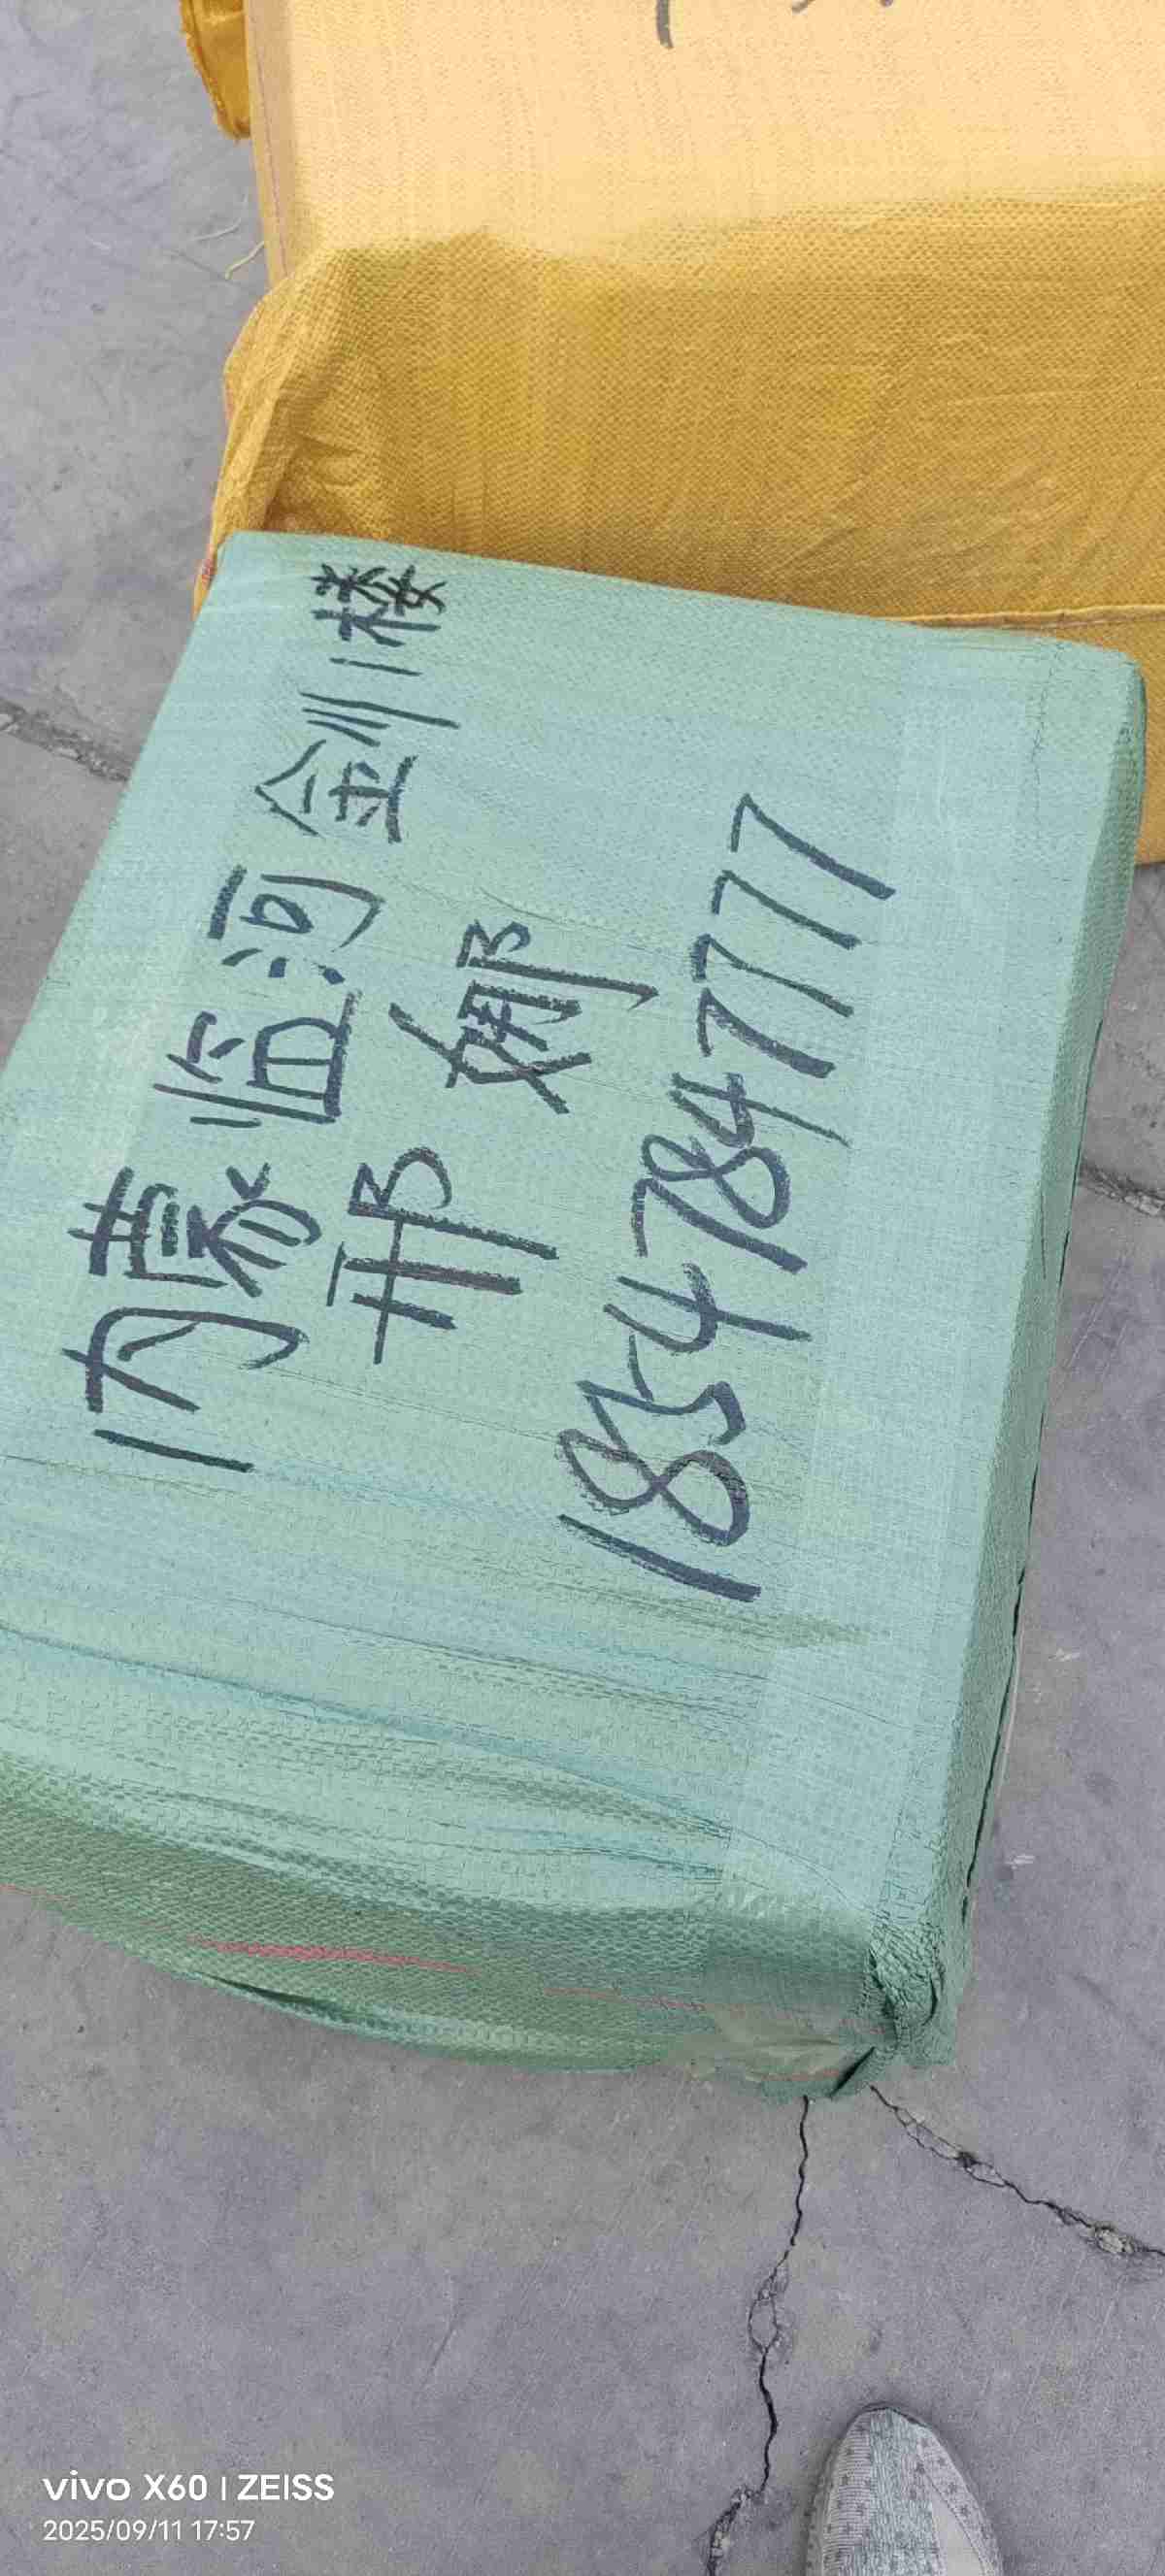 内蒙临河金楼
邢娜
18547847777
vivo X60 | ZEISS
2025/09/11 17:57